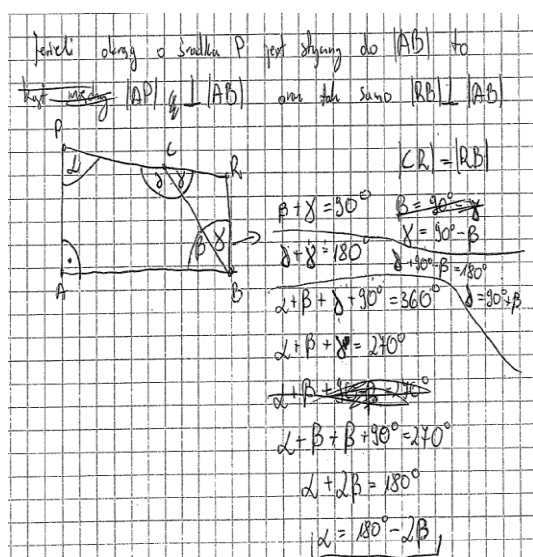 Jeżeli okrąg o środku P jest styczny do |AB| to
|AP| ⊥ |AB| oraz tak samo |RB| ⊥ |AB|
P
C
R
α
δ γ
β γ
A
B
|CR| = |RB|
β + γ = 90°
β = 90° - γ
γ = 90° - β
δ + γ = 180°
δ + 90° - β = 180°
δ = 90° + β
α + β + δ + 90° = 360°
α + β + δ = 270°
α + β + 90° + β = 270°
α + β + β + 90° = 270°
α + 2β = 180°
α = 180° - 2β